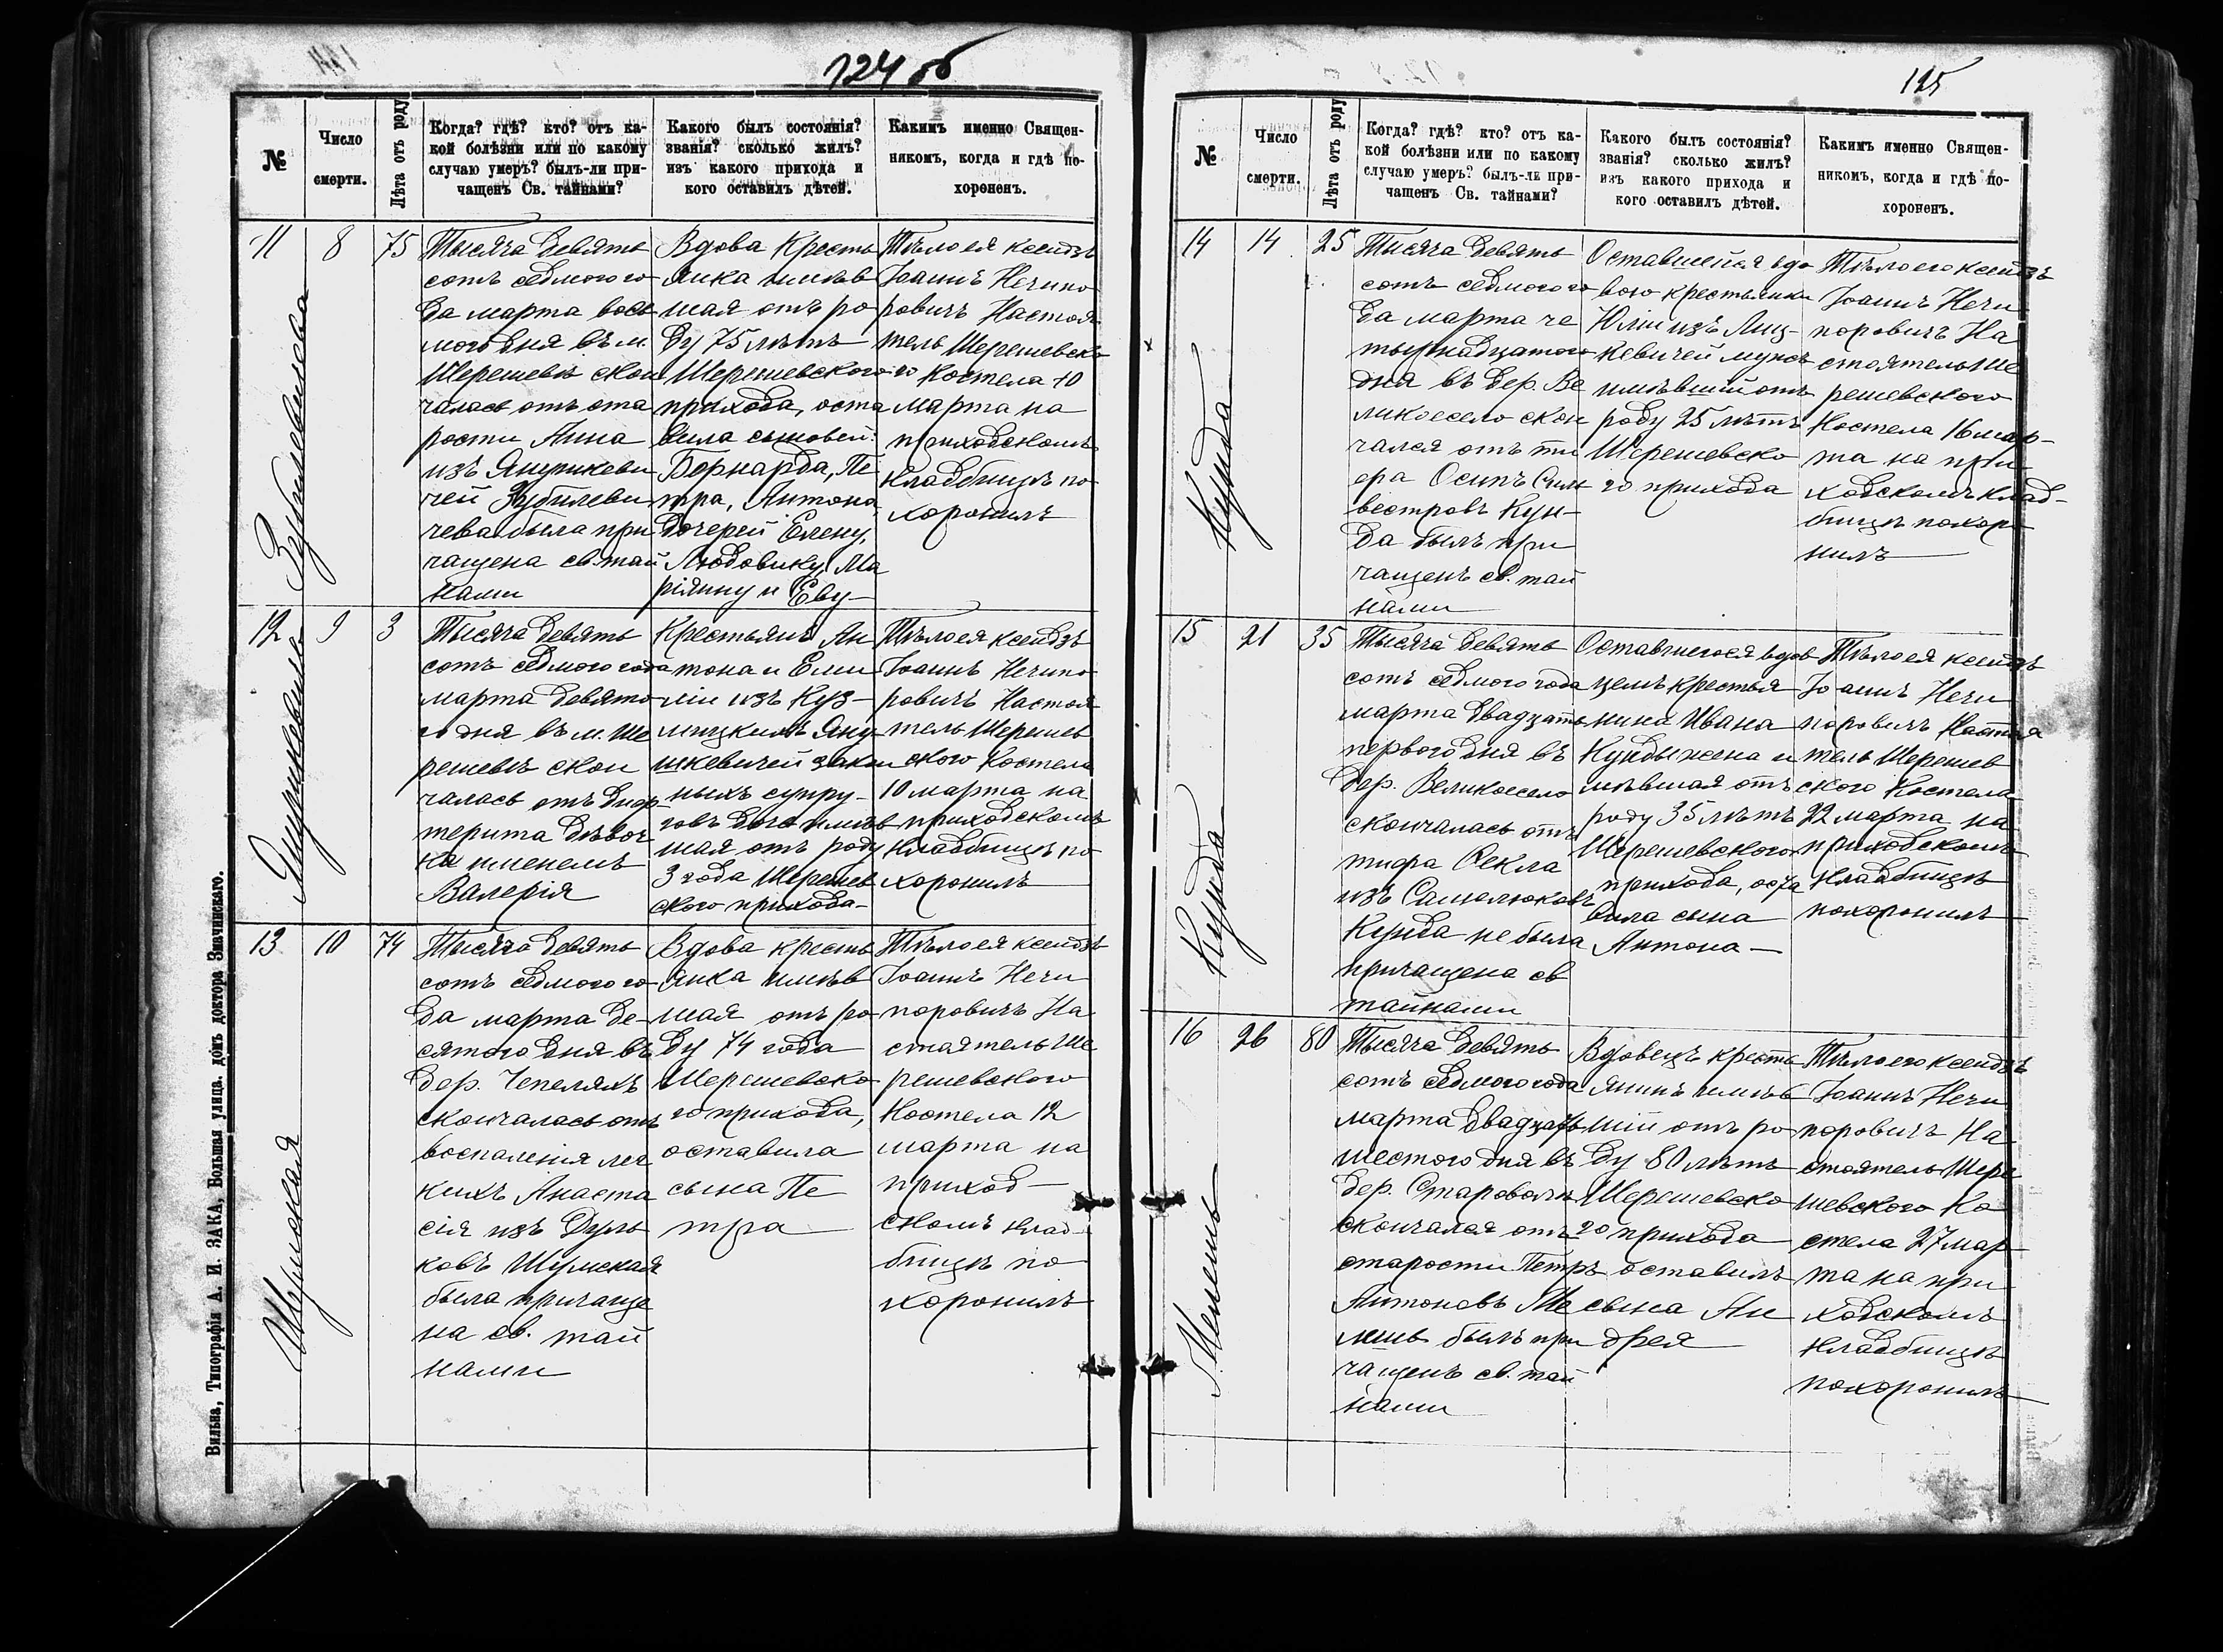 124 об
№
Число
смерти.
Лѣта отъ роду
Когда? гдѣ? кто? отъ ка-
кой болѣзни или по какому
случаю умеръ? былъ-ли при-
чащенъ Св. тайнами?
Какого былъ состоянія?
званія? сколько жилъ?
изъ какого прихода и
кого оставилъ дѣтей.
Какимъ именно Священ-
никомъ, когда и гдѣ по-
хороненъ.
11
8
75
Тысяча девять
сотъ седмого го
да марта вось
мого дня въ м.
Шерешевѣ скон
чалась отъ ста
рости Анна
изъ Янушкеви
чей Зубилеви
чева была при
чащена св. тай
нами
Вдова кресть
янка имѣв
шая отъ ро
ду 75 лѣтъ
Шерешевского
прихода, оста
вила сыновей:
Бернарда, Пе
тра, Антона,
дочерей Елену,
Людовику, Ма
ріянну и Еву
Тѣло ея ксендзъ
Іоаннъ Нечипо
ровичъ Настоя
тель Шерешевск
го Костела 10
марта на
приходскомъ
кладбищѣ по
хоронилъ
Зубилевичова
12
9
3
Тысяча девять
сотъ седмого года
марта девято
го дня въ м. Ше
решевѣ скон
чалась отъ диф
терита дѣвоч
ка именемъ
Валерія
Крестьянъ Ан
тона и Еми
ліи изъ Куз
мицкихъ Яну
шкевичей закон
ныхъ супру-
говъ дочь имѣв
шая отъ роду
3 года Шерешев
ского прихода
Тѣло ея ксендзъ
Іоаннъ Нечипо
ровичъ Настоя
тель Шерешев
ского Костела
10 марта на
приходскомъ
кладбищѣ по
хоронилъ
Янушкевичъ
13
10
74
Тысяча девять
сотъ седмого го
да марта де-
сятого дня въ
дер. Чепеляхъ
скончалась отъ
воспаленія лег
кихъ Анаста
сія изъ Дуль
ковъ Шумская
была причаще
на св. тай
нами
Вдова кресть
янка имѣв
шая отъ ро
ду 74 года
Шерешевско
го прихода,
оставила
сына Пе
тра
Тѣло ея ксендзъ
Іоаннъ Нечи
поровичъ На
стоятель Ше
решевского
Костела 12
марта на
приход
скомъ клад
бищѣ по
хоронилъ
Шумская
Вильна, Типографія А. И. ЗАКА, Большая улица. домъ доктора Звачинскаго.
125
№
Число
смерти.
Лѣта отъ роду
Когда? гдѣ? кто? отъ ка-
кой болѣзни или по какому
случаю умеръ? былъ-ли при-
чащенъ Св. тайнами?
Какого былъ состоянія?
званія? сколько жилъ?
изъ какого прихода и
кого оставилъ дѣтей.
Какимъ именно Священ-
никомъ, когда и гдѣ по-
хороненъ.
14
14
25
Тысяча девять
сотъ седмого го
да марта че
тырнадцатого
дня въ дер. Ве
ликоесело скон
чался отъ ти
фа Осипъ Силь
вестровъ Кун-
да былъ при
чащенъ св. тай
нами
Оставшейся вдо
вою крестьянки
Юліи изъ Лиц-
кевичей мужъ
имѣвшій отъ
роду 25 лѣтъ
Шерешевско
го прихода
Тѣло его ксендзъ
Іоаннъ Нечи
поровичъ На
стоятель Ше
решевского
Костела 16 мар-
та на при
ходскомъ клад-
бищѣ похоро
нилъ
Кунда
15
21
35
Тысяча девять
сотъ седмого года
марта двадцать
первого дня въ
дер. Великоесело
скончалась отъ
тифа Фекла
изъ Самелюковъ
Кунда не была
причащена св
тайнами
Оставшегося вдов
цемъ крестья
нина Ивана
Кунды жена и
мѣвшая отъ
роду 35 лѣтъ
Шерешевского
прихода, оста
вила сына
Антона
Тѣло ея ксендзъ
Іоаннъ Нечи
поровичъ Настоя
тель Шерешев
ского Костела
22 марта на
приходскомъ
кладбищѣ
похоронилъ
Кунда
16
26
80
Тысяча девять
сотъ седмого года
марта двадцать
шестого дня въ
дер. Староволи
скончался отъ
старости Петръ
Антоновъ Ме
лешь былъ при
чащенъ св. тай
нами
Вдовецъ кресть
янинъ имѣв
шій отъ ро
ду 80 лѣтъ
Шерешевско
го прихода
оставилъ
сына Ан
дрея
Тѣло его ксендзъ
Іоаннъ Нечи
поровичъ На
стоятель Шере
шевского Ко
стела 27 мар
та на при
ходскомъ
кладбищѣ
похоронилъ
Мелешь